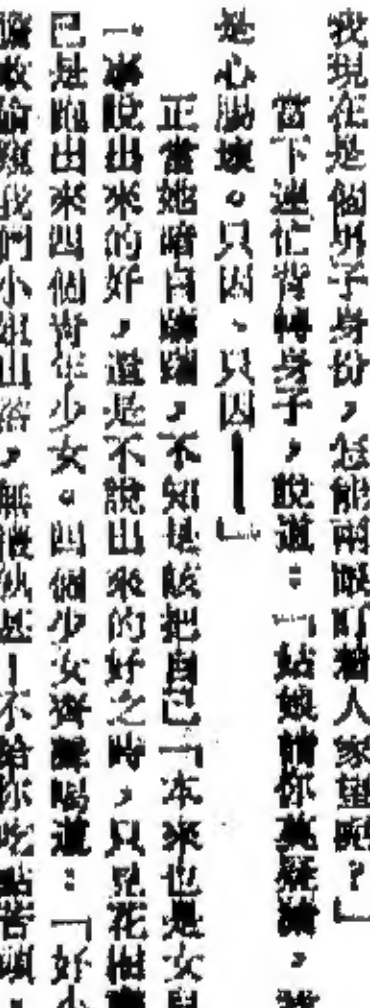 我現在是個男子身份，怎能兩眼盯着人家望呢？」
當下連忙背轉身子，說道：「姑娘請你莫疑議，
是心腸壞。只因、只因——」
正當她暗自躊躇，不知是該把自己「本來也是女兒
」事說出來的好，還是不說出來的好之時，只見花樹
已是跑出來四個青年少女。四個少女齊聲喝道：「好小
敢偷窺我們小姐出浴，無
！不給你吃點苦頭，